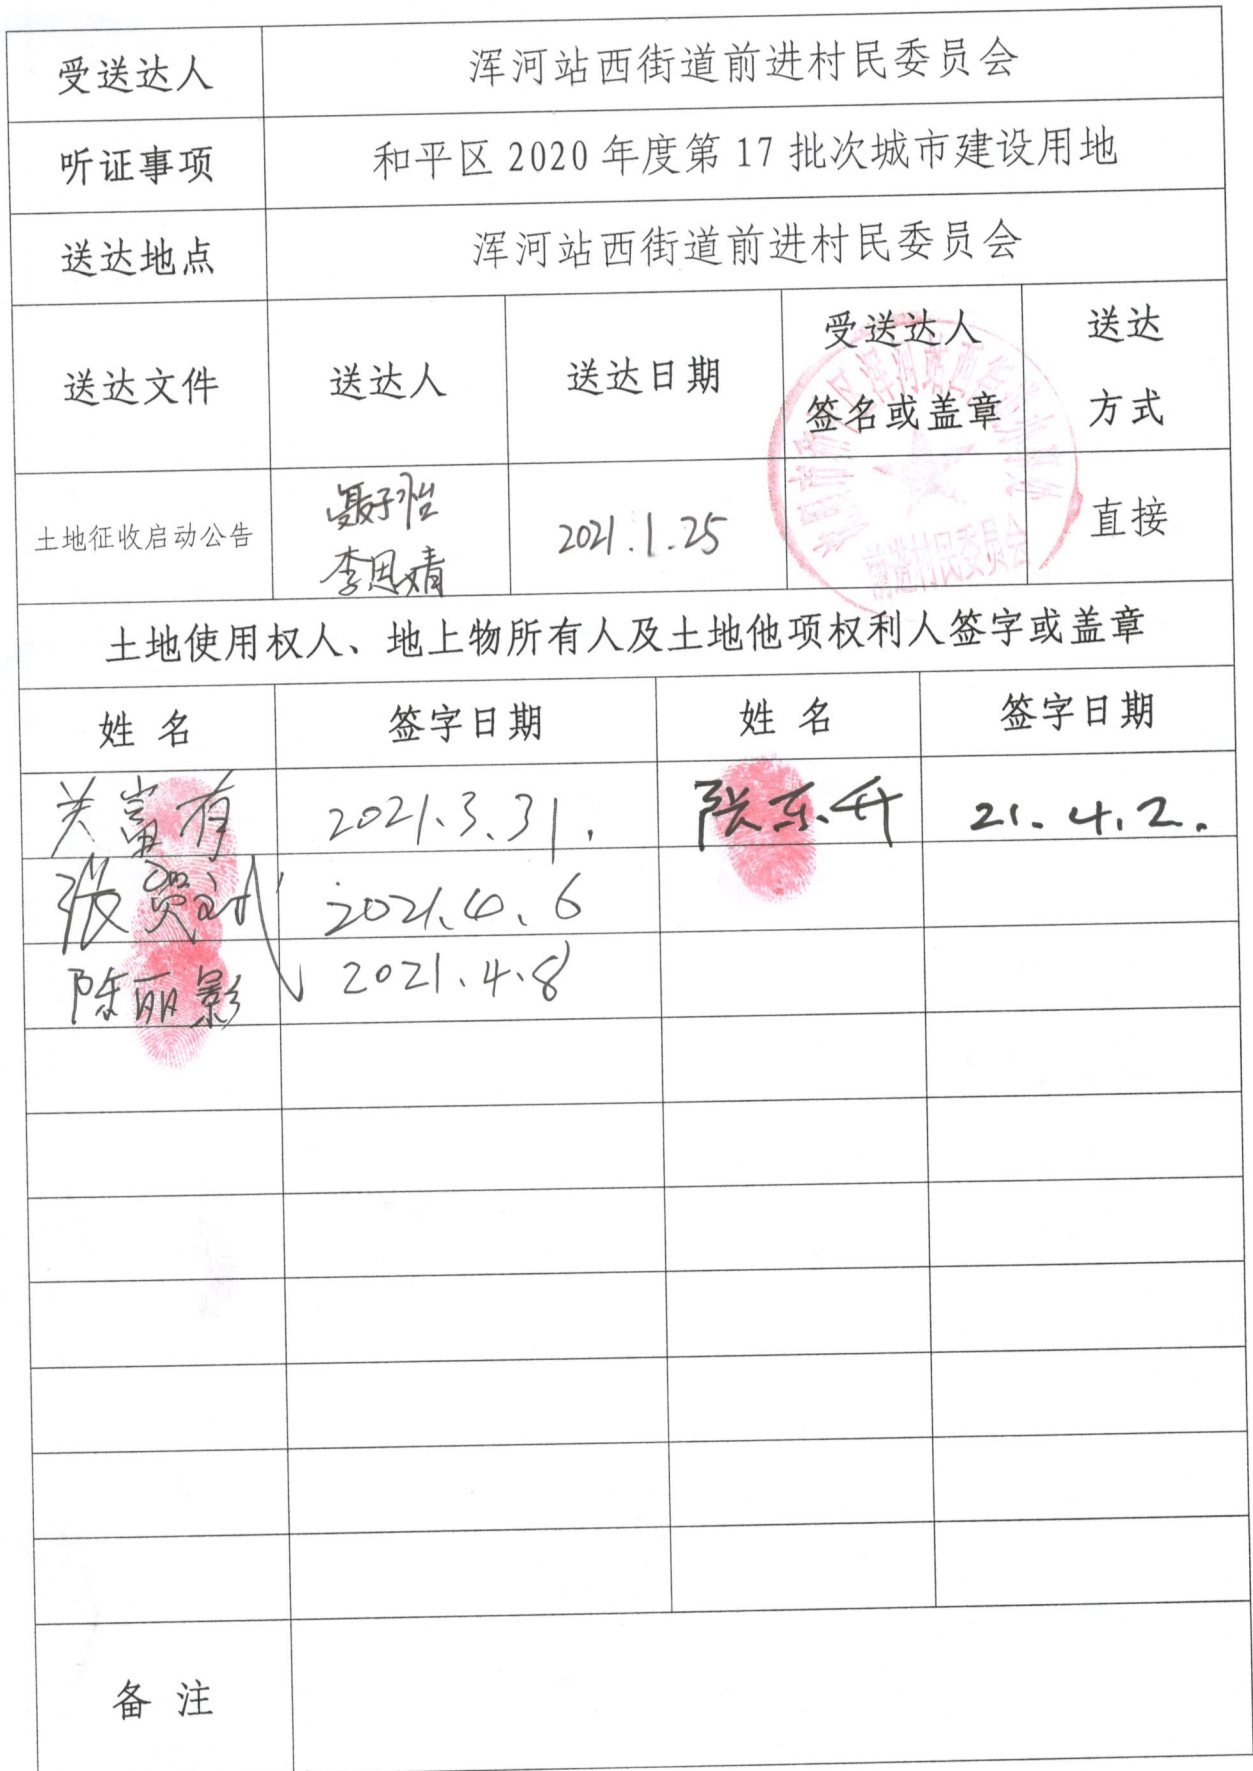 受送达人 浑河站西街道前进村民委员会
听证事项 和平区 2020 年度第 17 批次城市建设用地
送达地点 浑河站西街道前进村民委员会
送达文件 送达人 送达日期 受送达人 签名或盖章 送达 方式
土地征收启动公告 聂子怡 李思婧 2021.1.25 直接
前进村民委员会
土地使用权人、地上物所有人及土地他项权利人签字或盖章
姓 名 签字日期 姓 名 签字日期
关富有 2021.3.31. 张东升 21.4.2.
张贺斌 2021.4.6
陈丽影 2021.4.8
备 注